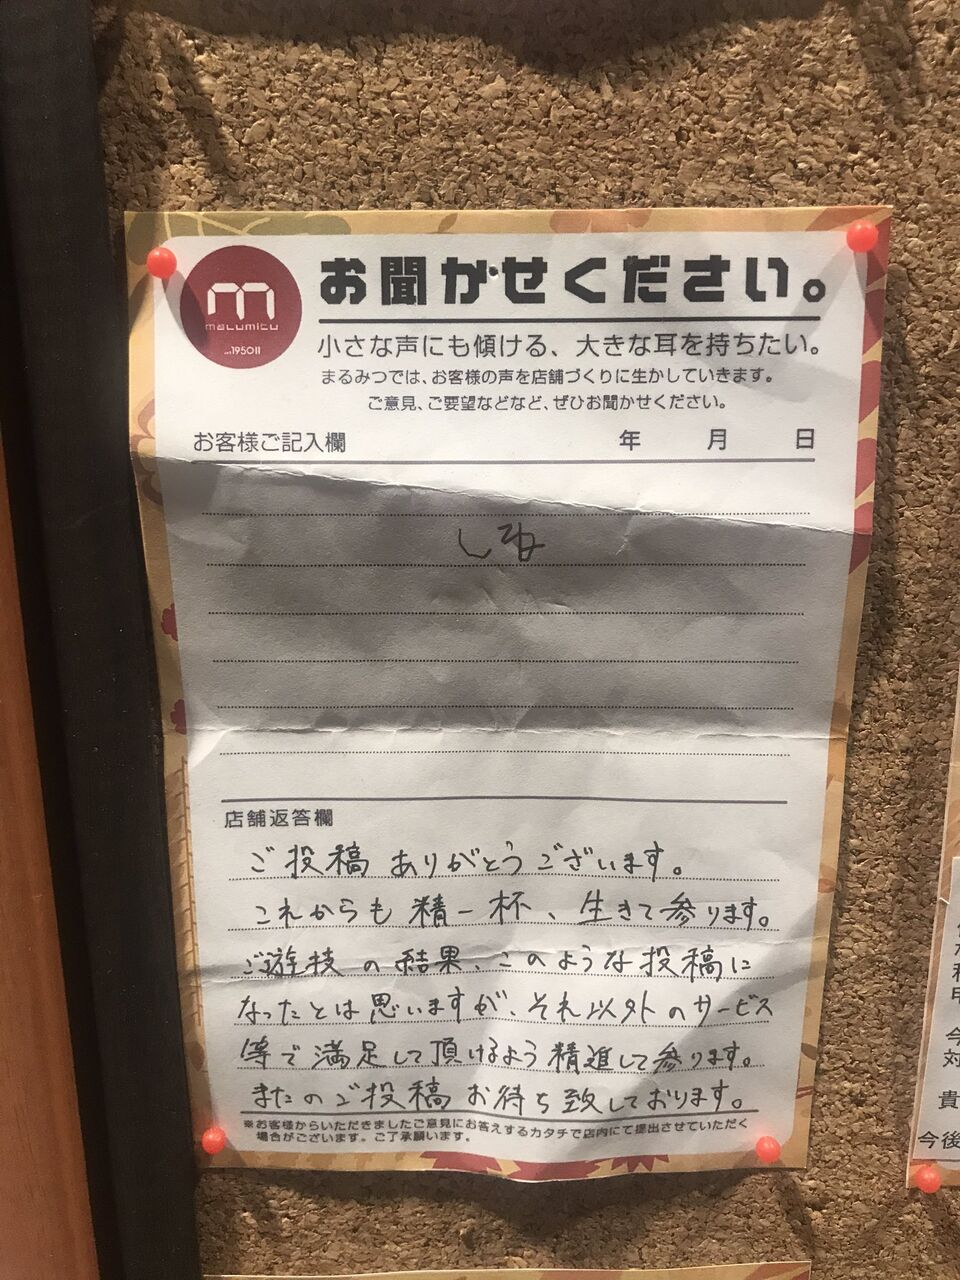 m
marumitu
お聞かせください。
小さな声にも傾ける、大きな耳を持ちたい。
まるみつでは、お客様の声を店舗づくりに生かしていきます。
ご意見、ご要望などなど、ぜひお聞かせください。
お客様ご記入欄 年 月 日
しね
店舗返答欄
ご投稿ありがとうございます。
これからも精一杯、生きて参ります。
ご遊技の結果、このような投稿に
なったとは思いますが、それ以外のサービス
等で満足して頂けるよう精進して参ります。
またのご投稿お待ち致しております。
※お客様からいただきましたご意見にお答えするカタチで店内にて提出させていただく
場合がございます。ご了承願います。
今
対
貴
今後